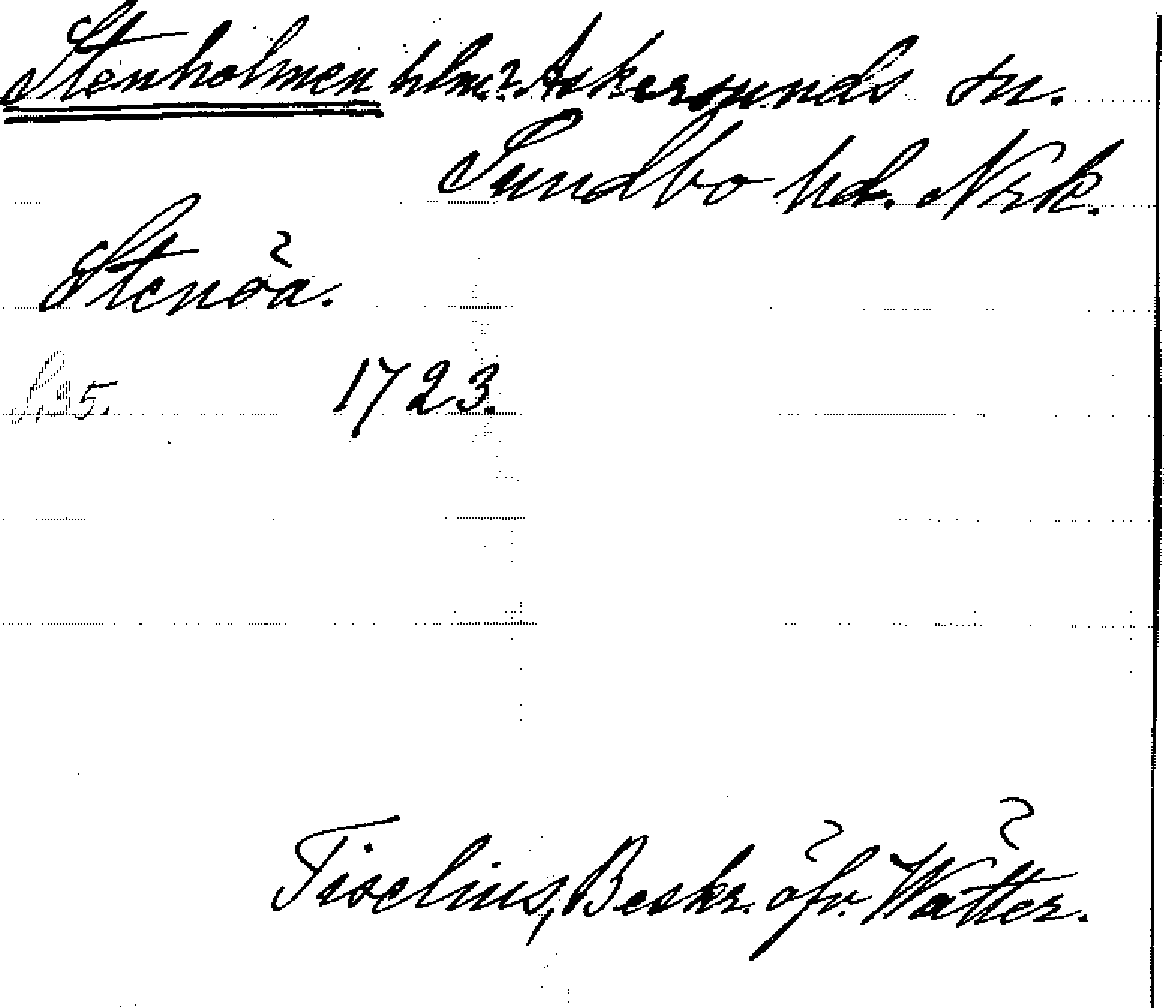 Stenholmen hlm? Askersunds sn.
Sundbo hd. Nrk.
Stenöa.
S. 5. 1723.
Tiselius, Beskr. öfv. Wätter.